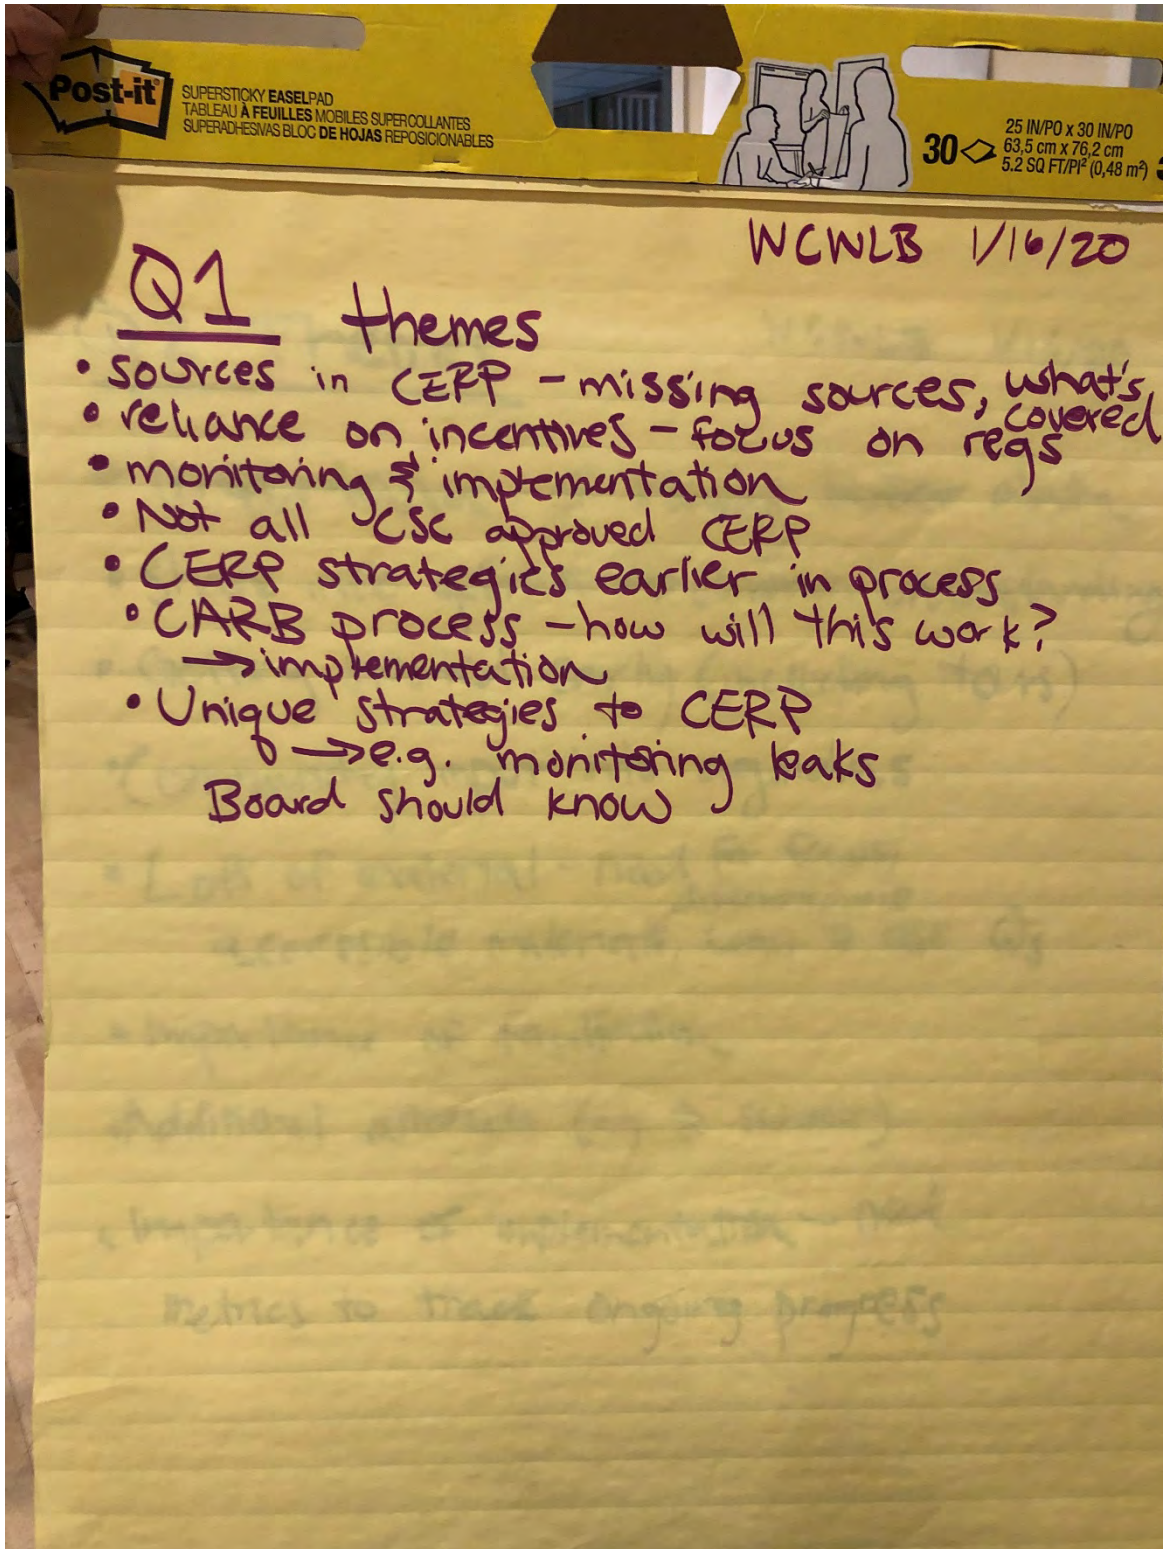 Post-it
SUPERSTICKY EASELPAD
TABLEAU À FEUILLES MOBILES SUPERCOLLANTES
SUPERADHESIVAS BLOC DE HOJAS REPOSICIONABLES
30
25 IN/PO x 30 IN/PO
63,5 cm x 76,2 cm
5.2 SQ FT/PI² (0,48 m²)
WCWLB 1/16/20
Q1 themes
• sources in CERP - missing sources, what's covered
• reliance on incentives - focus on regs
• monitoring & implementation
• Not all CSC approved CERP
• CERP strategies earlier in process
• CARB process - how will this work?
→ implementation
• Unique strategies to CERP
→ e.g. monitoring leaks
Board should know
• Lots of material - need
• Importance of
Additional
• Importance of implementation - need
metrics to track ongoing progress